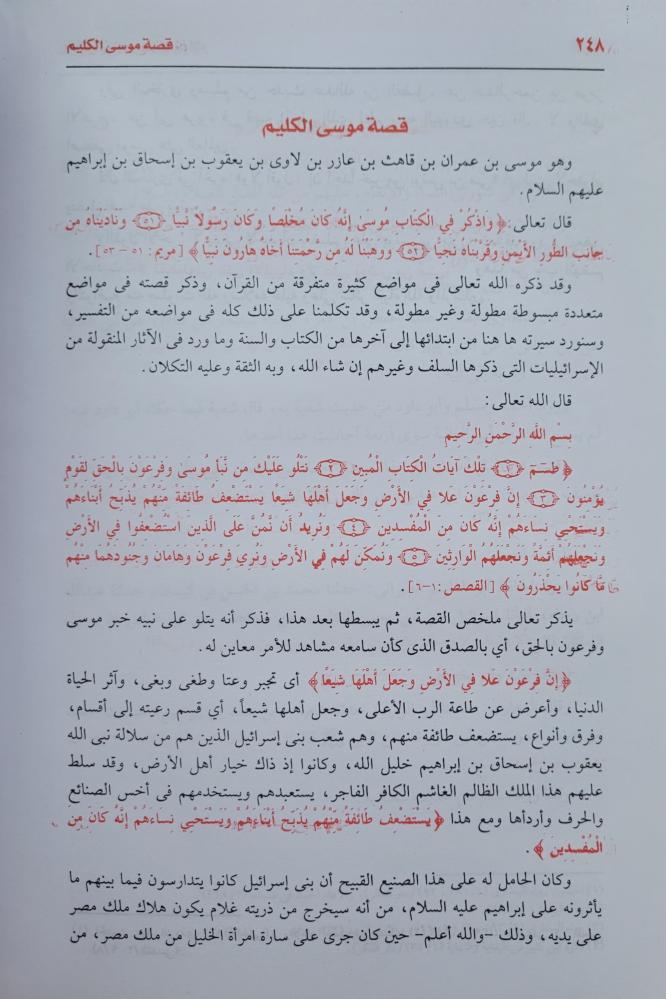 ٢٤٨
قصة موسى الكليم
قصة موسى الكليم
وهو موسى بن عمران بن قاهث بن عازر بن لاوى بن يعقوب بن إسحاق بن إبراهيم
عليهم السلام.
قال تعالى: ﴿ وَاذْكُرْ فِي الْكِتَابِ مُوسَىٰ إِنَّهُ كَانَ مُخْلَصًا وَكَانَ رَسُولاً نَّبِيًّا ﴿٥١﴾ وَنَادَيْنَاهُ مِن
جَانِبِ الطُّورِ الأَيْمَنِ وَقَرَّبْنَاهُ نَجِيًّا ﴿٥٢﴾ وَوَهَبْنَا لَهُ مِن رَّحْمَتِنَا أَخَاهُ هَارُونَ نَبِيًّا ﴾ [مريم: ٥١ - ٥٣].
وقد ذكره الله تعالى فى مواضع كثيرة متفرقة من القرآن، وذكر قصته فى مواضع
متعددة مبسوطة مطولة وغير مطولة، وقد تكلمنا على ذلك كله فى مواضعه من التفسير،
وسنورد سيرته ها هنا من ابتدائها إلى آخرها من الكتاب والسنة وما ورد فى الآثار المنقولة من
الإسرائيليات التى ذكرها السلف وغيرهم إن شاء الله، وبه الثقة وعليه التكلان.
قال الله تعالى:
بِسْمِ اللَّهِ الرَّحْمَنِ الرَّحِيمِ
﴿ طسٓمٓ ﴿١﴾ تِلْكَ آيَاتُ الْكِتَابِ الْمُبِينِ ﴿٢﴾ نَتْلُو عَلَيْكَ مِن نَّبَأِ مُوسَىٰ وَفِرْعَوْنَ بِالْحَقِّ لِقَوْمٍ
يُؤْمِنُونَ ﴿٣﴾ إِنَّ فِرْعَوْنَ عَلا فِي الأَرْضِ وَجَعَلَ أَهْلَهَا شِيَعًا يَسْتَضْعِفُ طَائِفَةً مِّنْهُمْ يُذَبِّحُ أَبْنَاءَهُمْ
وَيَسْتَحْيِي نِسَاءَهُمْ إِنَّهُ كَانَ مِنَ الْمُفْسِدِينَ ﴿٤﴾ وَنُرِيدُ أَن نَّمُنَّ عَلَى الَّذِينَ اسْتُضْعِفُوا فِي الأَرْضِ
وَنَجْعَلَهُمْ أَئِمَّةً وَنَجْعَلَهُمُ الْوَارِثِينَ ﴿٥﴾ وَنُمَكِّنَ لَهُمْ فِي الأَرْضِ وَنُرِيَ فِرْعَوْنَ وَهَامَانَ وَجُنُودَهُمَا مِنْهُم
مَّا كَانُوا يَحْذَرُونَ ﴾ [القصص: ١-٦].
يذكر تعالى ملخص القصة، ثم يبسطها بعد هذا، فذكر أنه يتلو على نبيه خبر موسى
وفرعون بالحق، أي بالصدق الذى كأن سامعه مشاهد للأمر معاين له.
﴿ إِنَّ فِرْعَوْنَ عَلا فِي الأَرْضِ وَجَعَلَ أَهْلَهَا شِيَعًا ﴾ أى تجبر وعتا وطغى وبغى، وآثر الحياة
الدنيا، وأعرض عن طاعة الرب الأعلى، وجعل أهلها شيعاً، أي قسم رعيته إلى أقسام،
وفرق وأنواع، يستضعف طائفة منهم، وهم شعب بنى إسرائيل الذين هم من سلالة نبى الله
يعقوب بن إسحاق بن إبراهيم خليل الله، وكانوا إذ ذاك خيار أهل الأرض، وقد سلط
عليهم هذا الملك الظالم الغاشم الكافر الفاجر، يستعبدهم ويستخدمهم فى أخس الصنائع
والحرف وأردأها ومع هذا ﴿ يَسْتَضْعِفُ طَائِفَةً مِّنْهُمْ يُذَبِّحُ أَبْنَاءَهُمْ وَيَسْتَحْيِي نِسَاءَهُمْ إِنَّهُ كَانَ مِنَ
الْمُفْسِدِينَ ﴾ .
وكان الحامل له على هذا الصنيع القبيح أن بنى إسرائيل كانوا يتدارسون فيما بينهم ما
يأثرونه على إبراهيم عليه السلام، من أنه سيخرج من ذريته غلام يكون هلاك ملك مصر
على يديه، وذلك -والله أعلم- حين كان جرى على سارة امرأة الخليل من ملك مصر، من